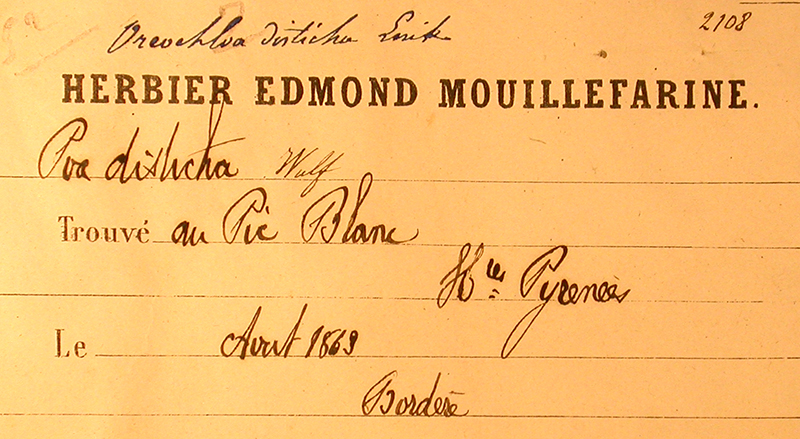 Oreochloa disticha Link 2108
HERBIER EDMOND MOUILLEFARINE.
Poa disticha Wulf
Trouvé au Pic Blanc
Htes Pyrenées
Le Aout 1869
Bordère